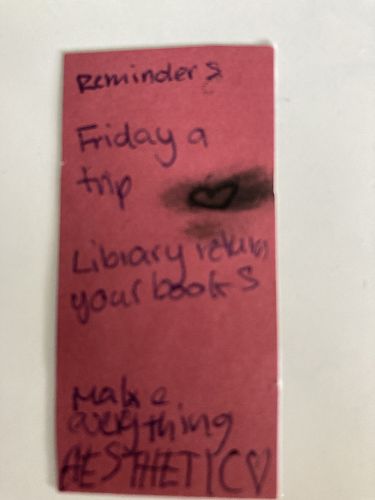 Reminders
Friday a
trip
Library return
your books
Make
everything
AESTHETIC♡